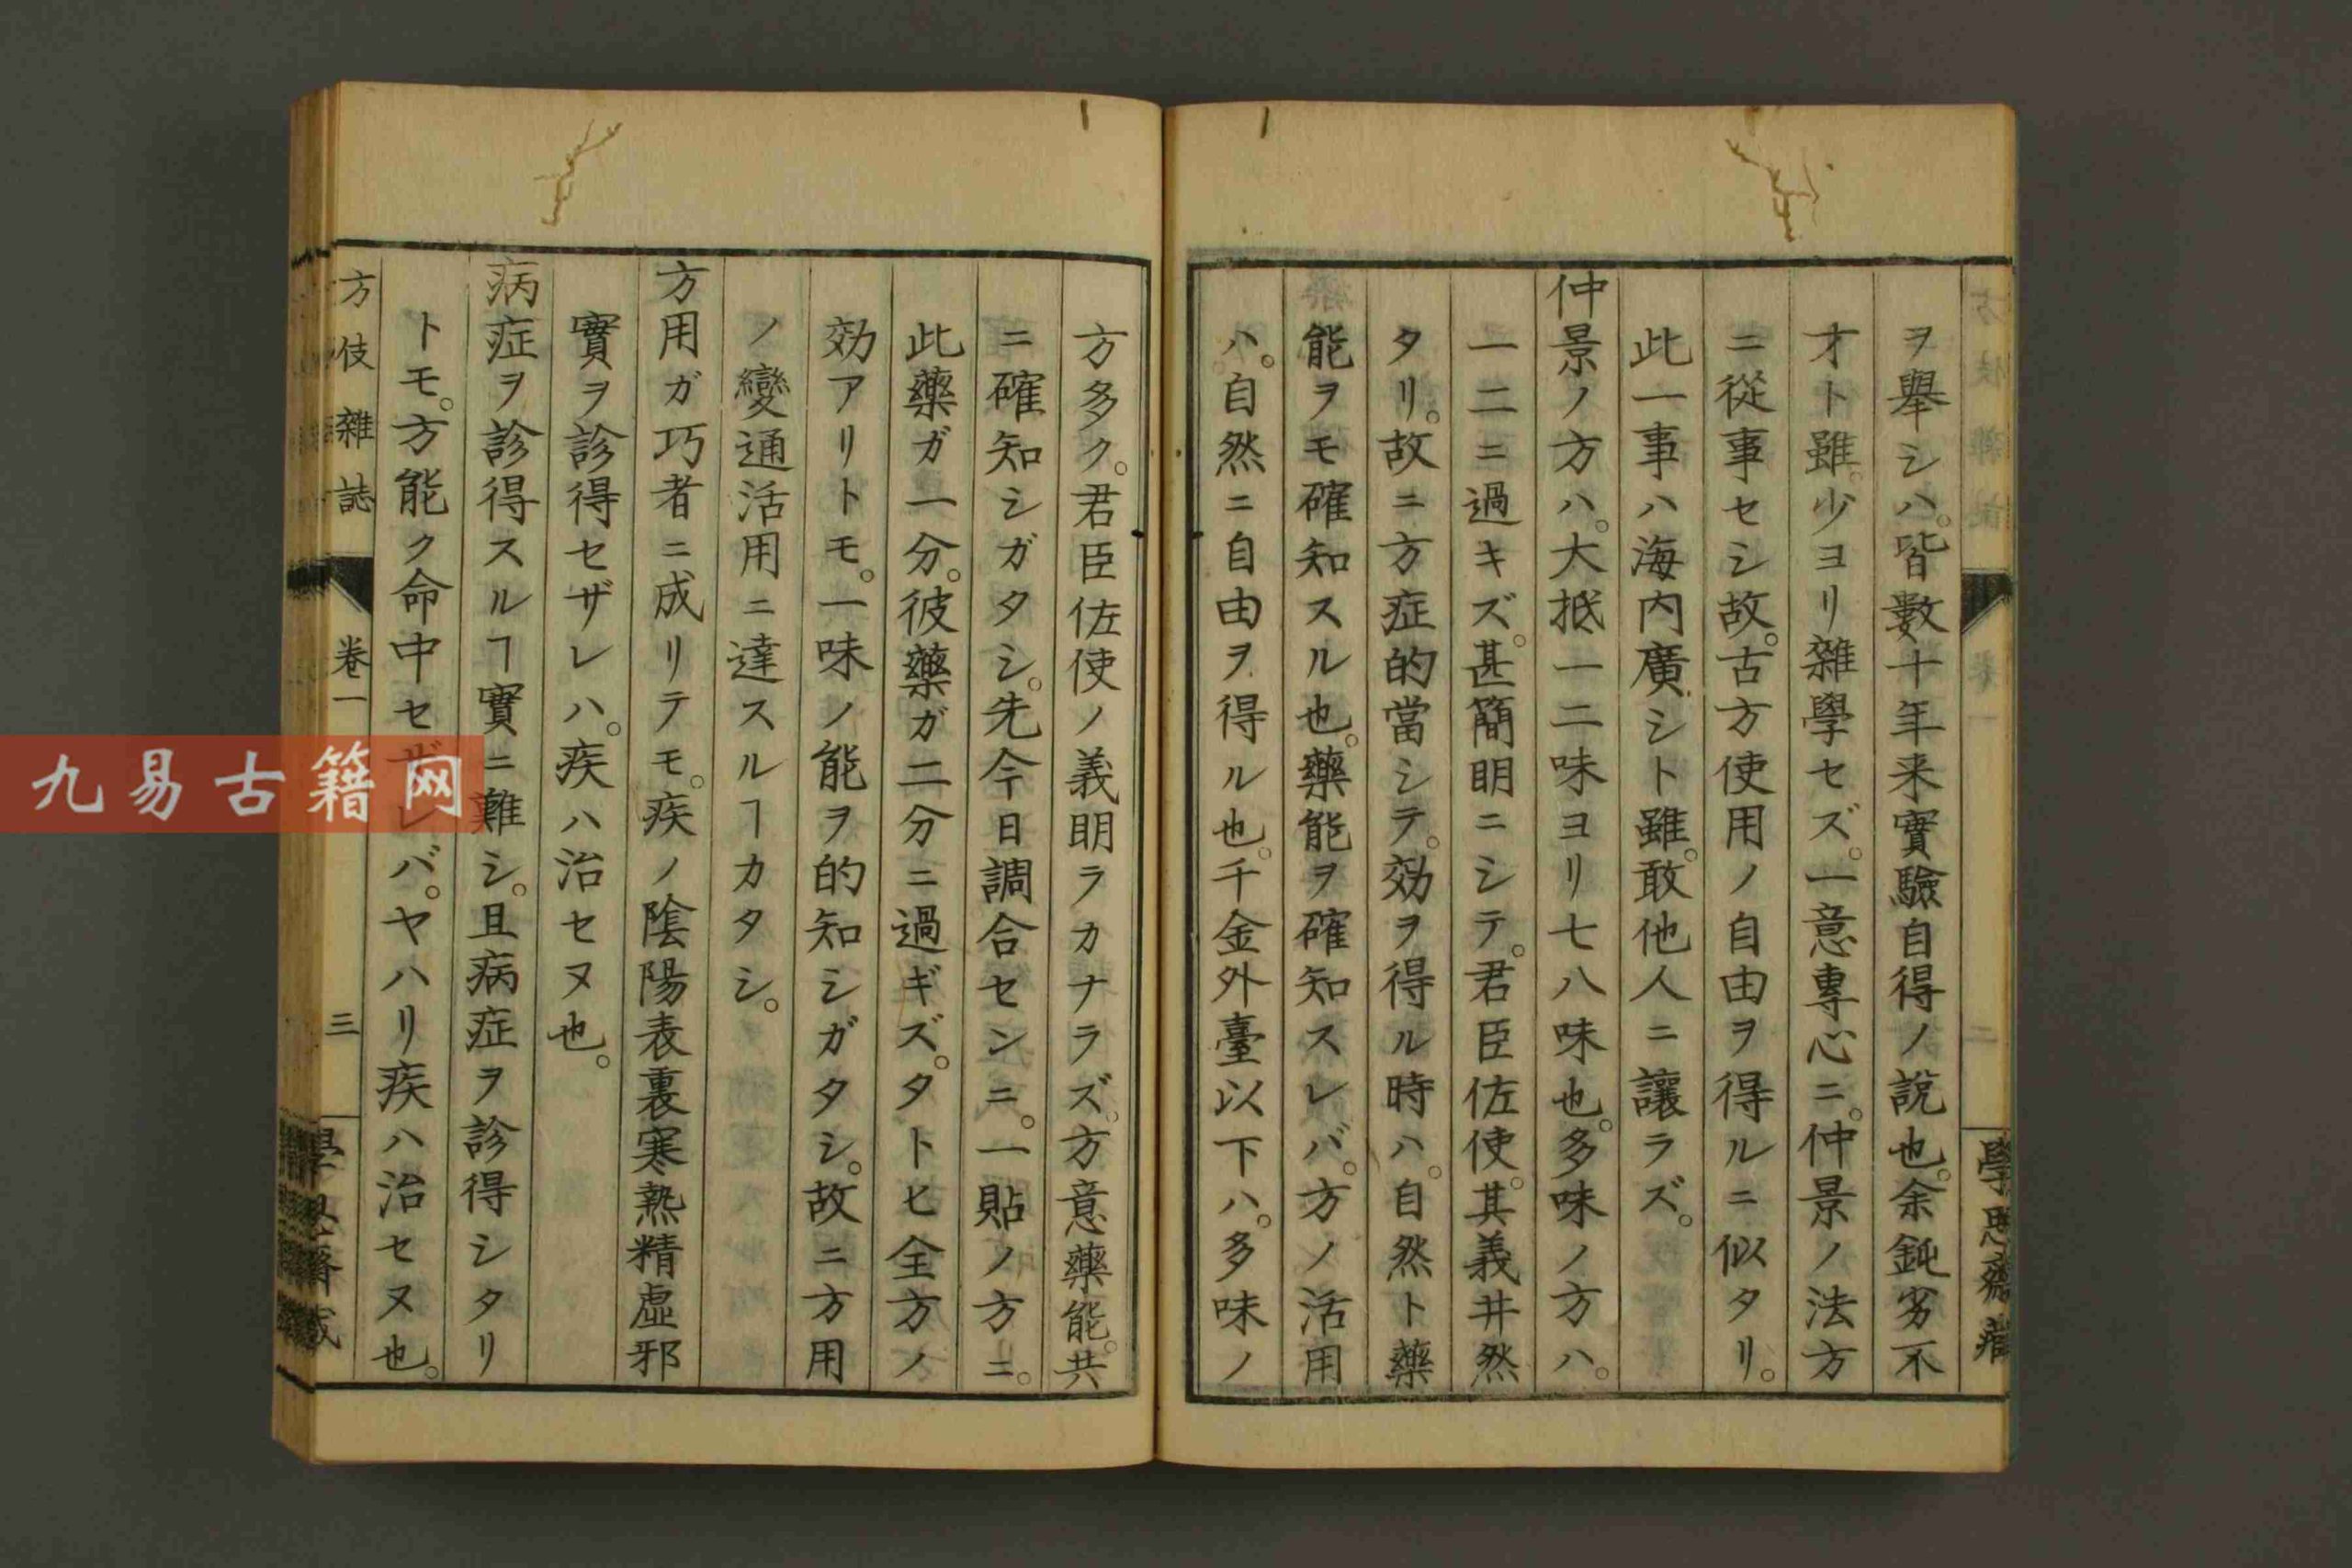 ヲ舉シハ。皆數十年来實驗自得ノ說也。余鈍劣不
才ト雖。少ヨリ雜學セズ。一意專心ニ。仲景ノ法方
ニ從事セシ故。古方使用ノ自由ヲ得ルニ似タリ。
此一事ハ海内廣シト雖。敢他人ニ讓ラズ。
仲景ノ方ハ。大抵一二味ヨリ七八味也。多味ノ方ハ。
一二ニ過キズ。甚簡明ニシテ。君臣佐使。其義井然
タリ。故ニ方症的當シテ。効ヲ得ル時ハ。自然ト藥
能ヲモ確知スル也。藥能ヲ確知スレバ。方ノ活用
ハ。自然ニ自由ヲ得ル也。千金外臺以下ハ。多味ノ
學思齋藏
方多ク。君臣佐使ノ義明ラカナラズ。方意藥能。共
ニ確知シガタシ。先今日調合センニ。一貼ノ方ニ。
此藥ガ一分。彼藥ガ二分ニ過ギズ。タトヒ全方ノ
効アリトモ。一味ノ能ヲ的知シガタシ。故ニ方用
ノ變通活用ニ達スルヿカタシ。
方用ガ巧者ニ成リテモ。疾ノ陰陽表裏寒熱精虛邪
實ヲ診得セザレハ。疾ハ治セヌ也。
病症ヲ診得スルヿ實ニ難シ。且病症ヲ診得シタリ
トモ。方能ク命中セザレバ。ヤハリ疾ハ治セヌ也。
方伎雜誌 卷一 三
九易古籍网